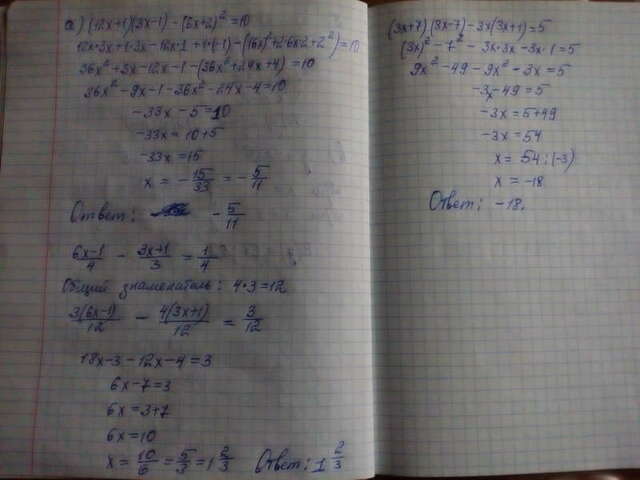 а) (12x+1)(3x-1) - (6x+2)² = 10
12x·3x+1·3x-12x·1+1·(-1)-((6x)²+2·6x·2+2²)=10
36x²+3x-12x-1-(36x²+24x+4)=10
36x²-9x-1-36x²-24x-4=10
-33x-5=10
-33x=10+5
-33x=15
x = -15/33 = -5/11
Ответ: -5/11
(6x-1)/4 - (3x+1)/3 = 1/4
Общий знаменатель: 4·3=12
3(6x-1)/12 - 4(3x+1)/12 = 3/12
18x-3-12x-4=3
6x-7=3
6x=3+7
6x=10
x = 10/6 = 5/3 = 1 2/3 Ответ: 1 2/3
(3x+7)(3x-7)-3x(3x+1)=5
(3x)²-7²-3x·3x-3x·1=5
9x²-49-9x²-3x=5
-3x-49=5
-3x=5+49
-3x=54
x=54:(-3)
x=-18
Ответ: -18.